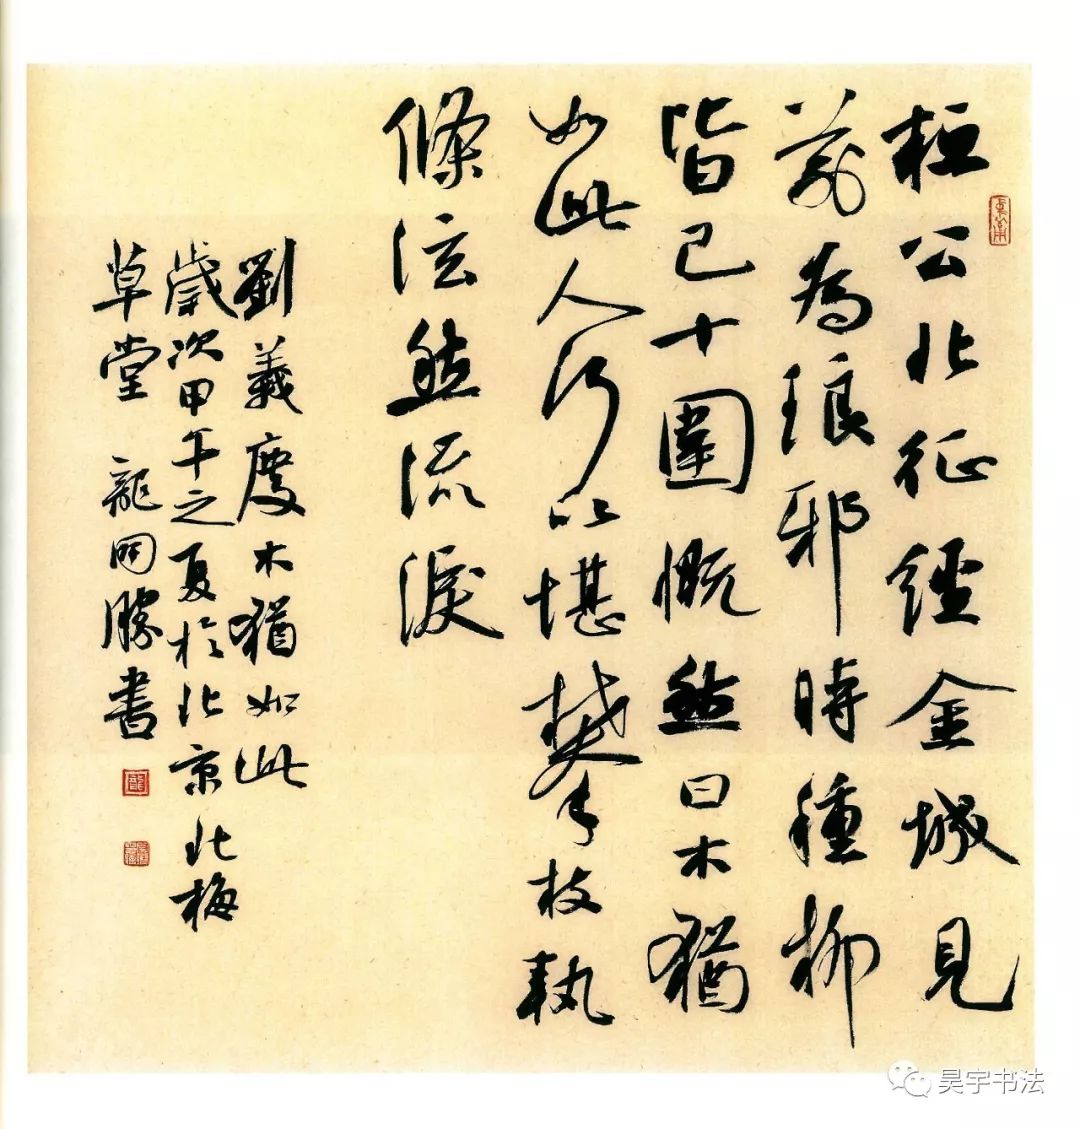 桓公北征經金城見
前為琅邪時種柳
皆已十圍慨然曰木猶
如此人何以堪攀枝執
條泫然流淚
劉義慶木猶如此
歲次甲午之夏於北京北梅
草堂 龍開勝書
昊宇书法